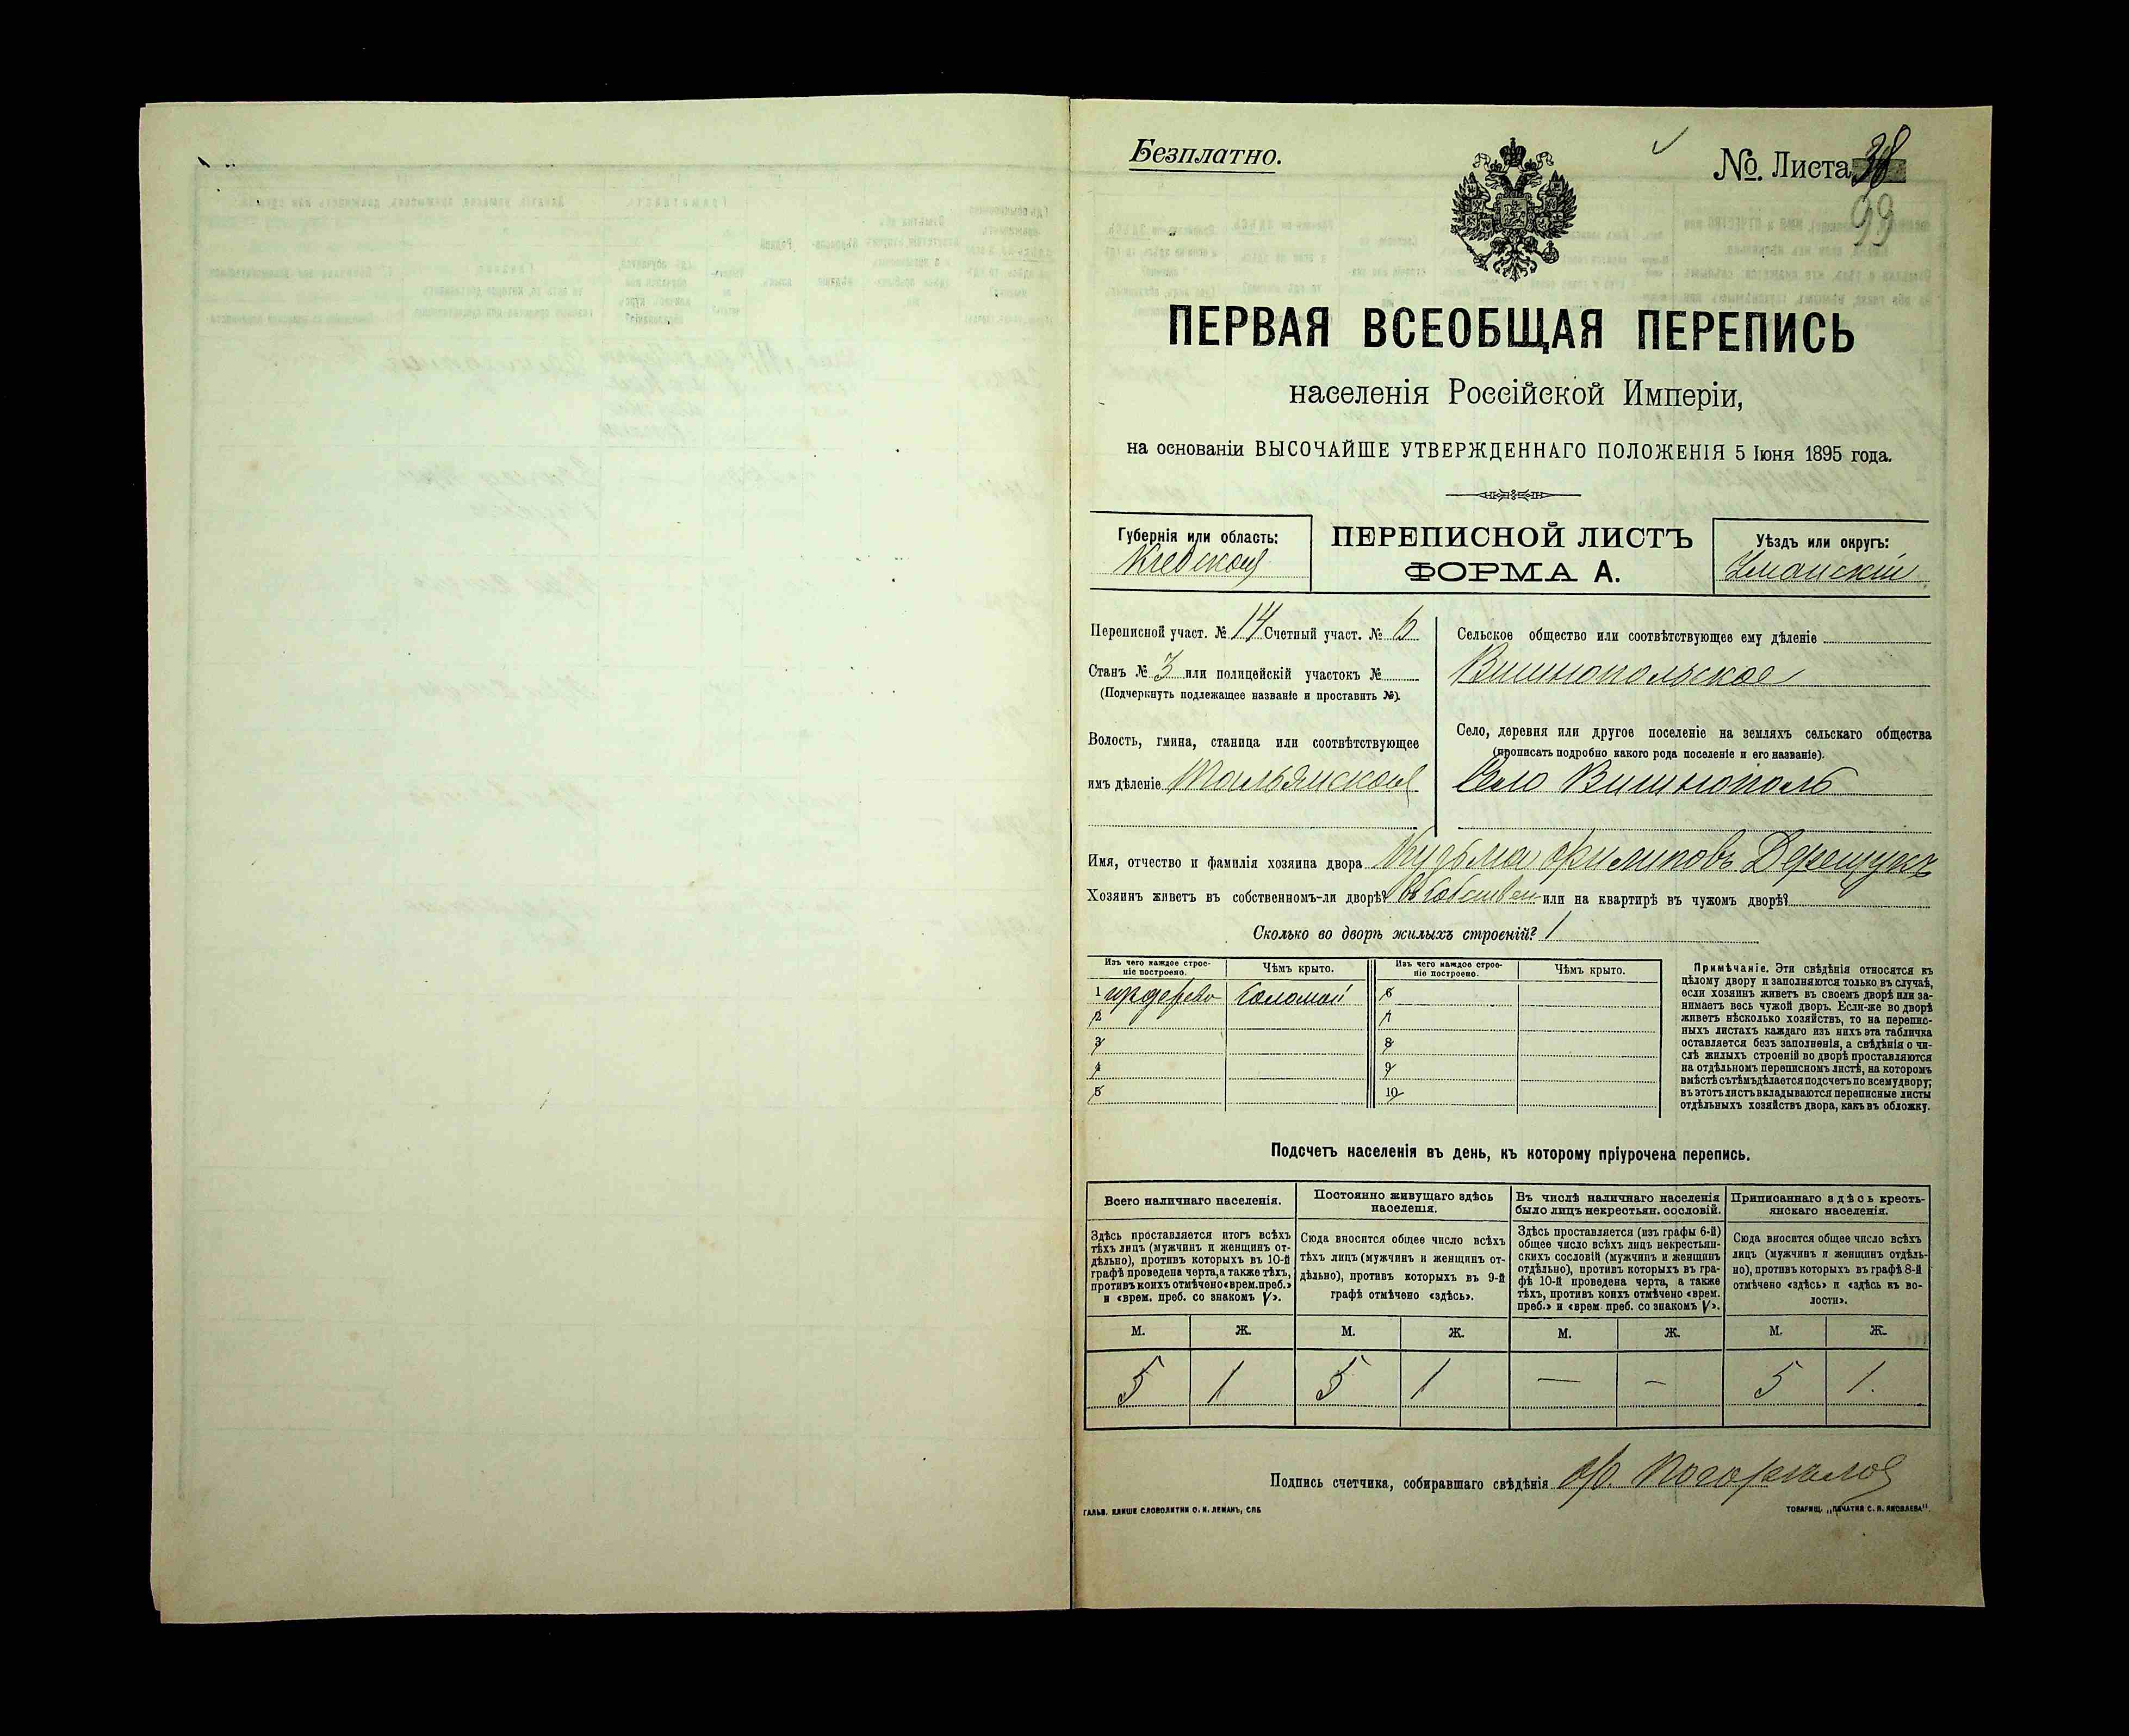 Безплатно.
№. Листа 38
99
ПЕРВАЯ ВСЕОБЩАЯ ПЕРЕПИСЬ
населенія Россійской Имперіи,
на основаніи ВЫСОЧАЙШЕ УТВЕРЖДЕННАГО ПОЛОЖЕНІЯ 5 Іюня 1895 года.
Губернія или область:
Кіевская
ПЕРЕПИСНОЙ ЛИСТЪ
ФОРМА А.
Уѣздъ или округъ:
Уманскій
Переписной участ. № 14 Счетный участ. № 6
Станъ № 3 или полицейскій участокъ №
(Подчеркнуть подлежащее названіе и проставить №).
Волость, гмина, станица или соотвѣтствующее
имъ дѣленіе Тальянская
Сельское общество или соотвѣтствующее ему дѣленіе
Вишнопольское
Село, деревня или другое поселеніе на земляхъ сельскаго общества
(прописать подробно какого рода поселеніе и его названіе).
Село Вишнополь
Имя, отчество и фамилія хозяина двора Кузьма Филиповъ Дерещукъ
Хозяинъ живетъ въ собственномъ-ли дворѣ? въ собствен или на квартирѣ въ чужомъ дворѣ?
Сколько во дворѣ жилыхъ строеній? 1
Изъ чего каждое строе-
ніе построено.
Чѣмъ крыто.
Изъ чего каждое строе-
ніе построено.
Чѣмъ крыто.
1 соломой 6
2 7
3 8
4 9
5 10
Примѣчаніе. Эти свѣдѣнія относятся къ
цѣлому двору и заполняются только въ случаѣ,
если хозяинъ живетъ въ своемъ дворѣ или за-
нимаетъ весь чужой дворъ. Если-же во дворѣ
живетъ нѣсколько хозяйствъ, то на перепис-
ныхъ листахъ каждаго изъ нихъ эта табличка
оставляется безъ заполненія, а свѣдѣнія о чи-
слѣ жилыхъ строеній во дворѣ проставляются
на отдѣльномъ переписномъ листѣ, на которомъ
вмѣстѣ съ тѣмъ дѣлается подсчетъ по всему двору;
въ этотъ листъ вкладываются переписные листы
отдѣльныхъ хозяйствъ двора, какъ въ обложку.
Подсчетъ населенія въ день, къ которому пріурочена перепись.
Всего наличнаго населенія.
Здѣсь проставляется итогъ всѣхъ
тѣхъ лицъ (мужчинъ и женщинъ от-
дѣльно), противъ которыхъ въ 10-й
графѣ проведена черта, а также тѣхъ,
противъ коихъ отмѣчено «врем. преб.»
и «врем. преб. со знакомъ V».
Постоянно живущаго здѣсь
населенія.
Сюда вносится общее число всѣхъ
тѣхъ лицъ (мужчинъ и женщинъ от-
дѣльно), противъ которыхъ въ 9-й
графѣ отмѣчено «здѣсь».
Въ числѣ наличнаго населенія
было лицъ некрестьян. сословій.
Здѣсь проставляется (изъ графы 6-й)
общее число всѣхъ лицъ некрестьян-
скихъ сословій (мужчинъ и женщинъ
отдѣльно), противъ которыхъ въ гра-
фѣ 10-й проведена черта, а также
тѣхъ, противъ коихъ отмѣчено «врем.
преб.» и «врем. преб. со знакомъ V».
Приписаннаго здѣсь кресть-
янскаго населенія.
Сюда вносится общее число всѣхъ
лицъ (мужчинъ и женщинъ отдѣль-
но), противъ которыхъ въ графѣ 8-й
отмѣчено «здѣсь» и «здѣсь къ во-
лости».
М. Ж. М. Ж. М. Ж. М. Ж.
5 1 5 1 — — 5 1.
Подпись счетчика, собиравшаго свѣдѣнія
ГАЛЬВ. КЛИШЕ СЛОВОЛИТНИ О. И. ЛЕМАНЪ, СПБ
ТОВАРИЩ. „ПЕЧАТНЯ С. П. ЯКОВЛЕВА".